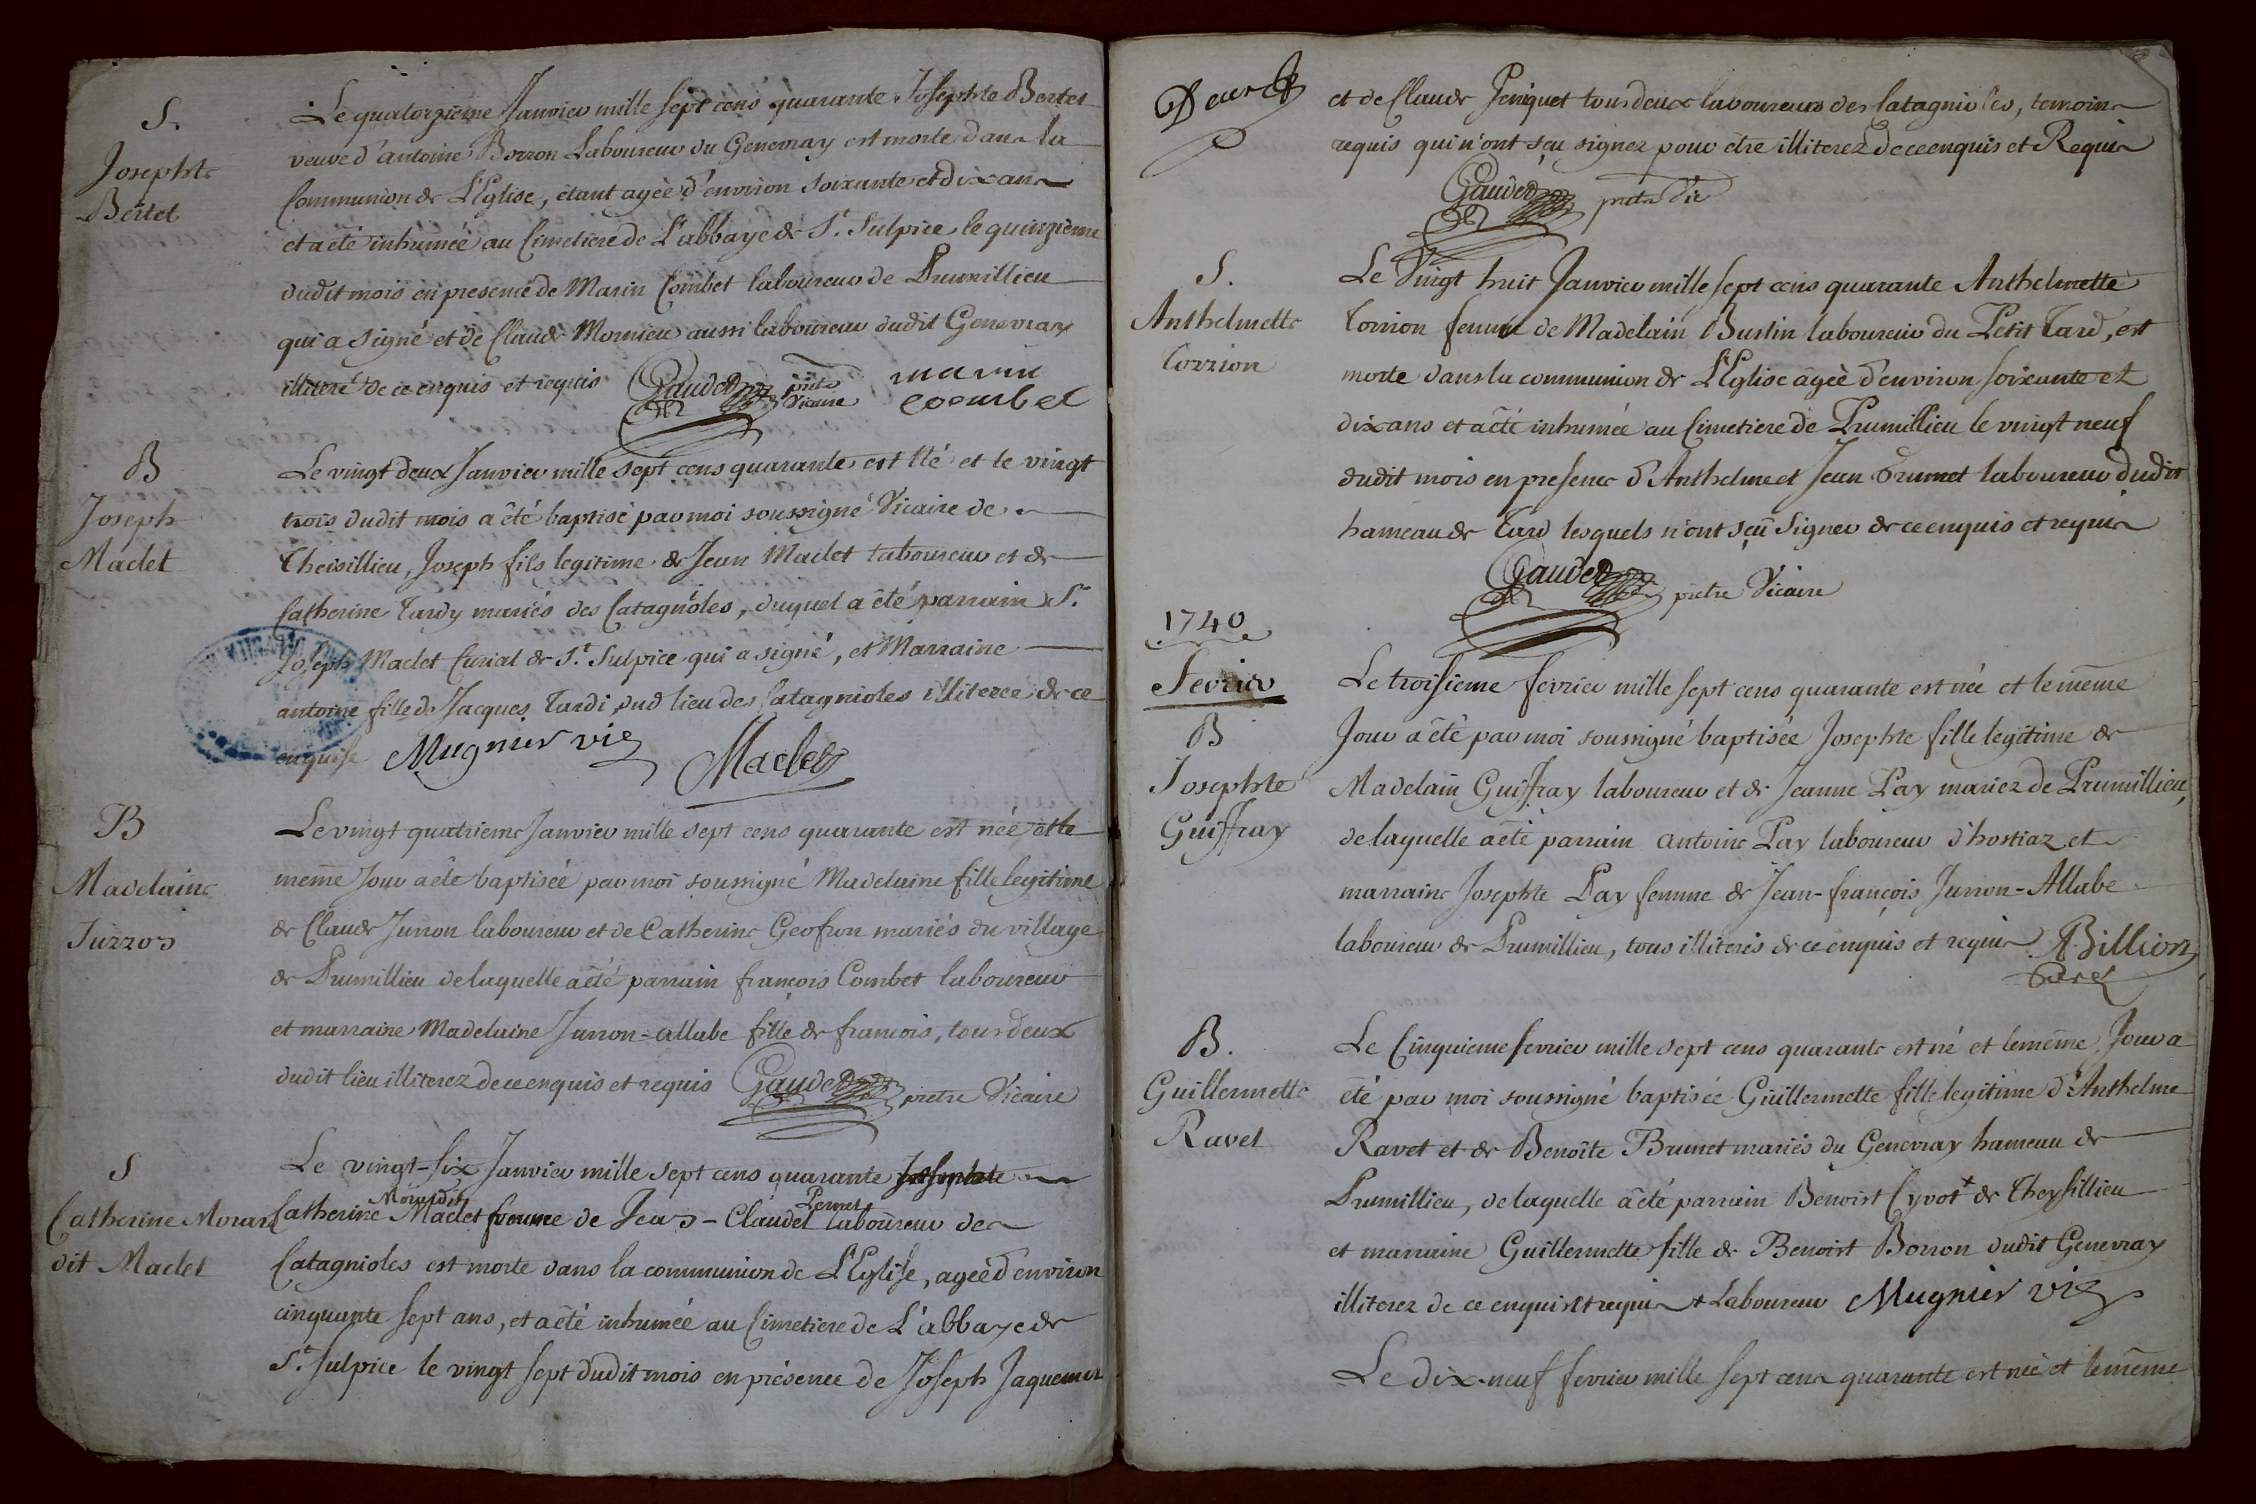 S.
Josephte
Bertet
Le quatorzieme Janvier mille sept cens quarante Josephte Bertet
veuve d'antoine Borron Laboureur du Genevray est morte dans la
Communion de L'Eglise, étant agèe d'environ soixante et dix ans
et a êté inhumée au Cimetiere de L'abbaye de St. Sulpice le quinzieme
dudit mois en presence de Marin Combet laboureur de Prumillieu
qui a signé et de Claude Mornieu aussi laboureur dudit Genevray
illiteré de ce enquis et requis Gaudet pretre Vicaire marin coembet
B
Joseph
Maclet
Le vingt deux Janvier mille sept cens quarante est Né et le vingt
trois dudit mois a êté baptisé par moi soussigné Vicaire de
Theisillieu, Joseph fils legitime de Jean Maclet laboureur et de
Catherine Tardy mariés des Catagnoles, duquel a êté parrain Sr.
Joseph Maclet Curial de St. Sulpice qui a signé, et Marraine
antoine fille de Jacques Tardi dud lieu des Catagnioles illiteree de ce
enquise Mugnier vic Maclet
B
Madelaine
Juzzon
Le vingt quatrieme Janvier mille sept cens quarante est née et le
meme Jour a êté baptisée par moi soussigné Madelaine fille legitime
de Claude Jurron laboureur et de Catherine Geofron mariés du village
de Prumillieu de laquelle a êté parrain françois Combet laboureur
et marraine Madelaine Jurron-allabe fille de francois, tous deux
dudit lieu illiterez de ce enquis et requis Gaudet pretre Vicaire
S
Catherine Morard
dit Maclet
Le vingt-six Janvier mille sept cens quarante Josephte
Morard dit Pernet
Catherine Maclet femme de Jean-Claude laboureur des
Catagnioles est morte dans la communion de L'Eglise, agée d'environ
cinquante sept ans, et a êté inhumée au Cimetiere de L'abbaye de
St. Sulpice le vingt sept dudit mois en présence de Joseph Jaquemet
et de Claude Peniquet tous deux laboureurs des Catagnioles, temoins
requis qui n'ont sçu signer pour etre illiterez de ce enquis et Requis
Gaudet pretre Vic
S.
Anthelmette
Torrion
Le Vingt huit Janvier mille sept cens quarante Anthelmette
Torrion femme de Madelain Bustin laboureur du Petit Tard, est
morte dans la communion de L'Eglise âgée d'environ soixante et
dix ans et a êté inhumée au Cimetiere de Prumillieu le vingt neuf
dudit mois en presence d'Anthelme et Jean Brunet laboureur dudit
hameau de Tard lesquels n'ont sçu signer de ce enquis et requis
Gaudet pretre Vicaire
1740
Fevrier
B
Josephte
Guiffray
Le troisieme fevrier mille sept cens quarante est née et le même
Jour a êté par moi soussigné baptisée Josephte fille legitime de
Madelain Guiffray laboureur et de Jeanne Pay mariez de Prumillieu,
de laquelle a êté parrain antoine Pay laboureur d'hostiaz et
marraine Josephte Pay femme de Jean-françois Jurron-Allabe
laboureur de Prumillieu, tous illiterés de ce enquis et requis Billion
Curé
B.
Guillermette
Ravet
Le Cinquieme fevrier mille sept cens quarante est né et le même Jour a
été par moi soussigné baptisée Guillermette fille legitime d'Anthelme
Ravet et de Benoîte Brunet mariés du Genevray hameau de
Prumillieu, de laquelle a êté parrain Benoist Cyvot + de Theysillieu
et marraine Guillermette fille de Benoist Borron dudit Genevray
illiterez de ce enquis et requis + Laboureur Mugnier vic
Le dix-neuf fevrier mille sept cens quarante est née et le même